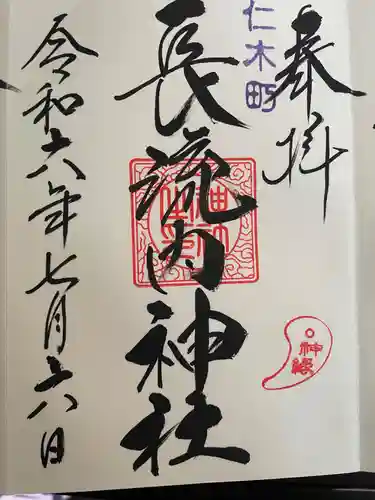 奉拝
仁木町
長流内神社
神縁
令和六年七月六日